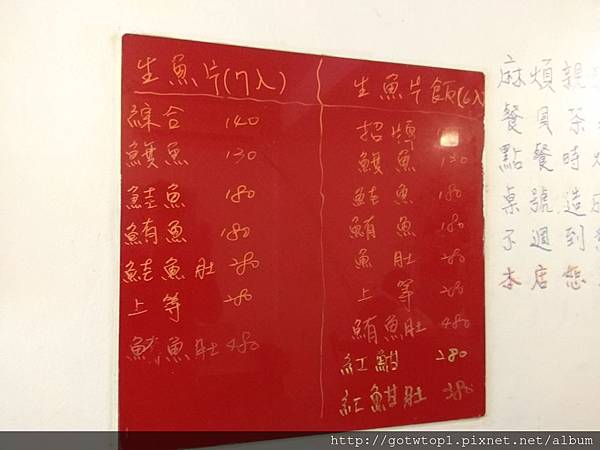 生魚片(7入)
綜合 140
鱶魚 130
鮭魚 180
鮪魚 180
鮭魚肚 280
上等 280
鮪魚肚 480
生魚片飯(6入
招牌
魚 130
鮭魚 180
鮪魚 180
魚肚 280
上等 280
鮪魚肚 480
紅 280
紅 肚 380
麻煩親
餐具茶
點餐時
桌號造
子週到
本店想
http://gotwtop1.pixnet.net/album